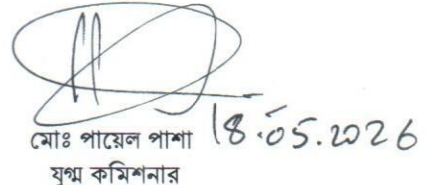 মোঃ পায়েল পাশা 18.05.2026
যুগ্ম কমিশনার